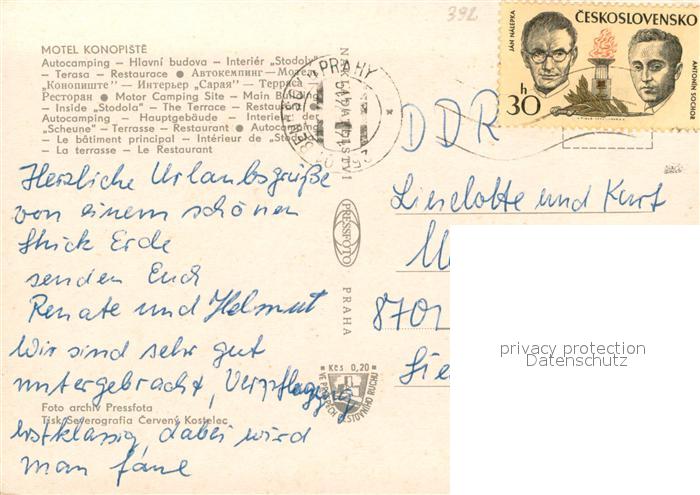 392
MOTEL KONOPIŠTĚ
Autocamping – Hlavní budova – Interiér „Stodoly“
– Terasa – Restaurace ● Автокемпинг – Мотель
„Конопиште“ – Интерьер „Сарая“ – Терраса –
Ресторан ● Motor Camping Site – Main Building
– Inside „Stodola“ – The Terrace – Restaurant ●
Autocamping – Hauptgebäude – Interieur der
„Scheune“ – Terrasse – Restaurant ● Autocamping
– Le bâtiment principal – Intérieur de „Stodola“
– La terrasse – Le Restaurant
Herzliche Urlaubsgrüße
von einem schönen
Stück Erde
senden Euch
Renate und Helmut
Wir sind sehr gut
untergebracht, Verpflegung
erstklassig, dabei wird
man faul
Foto archiv Pressfota
Tisk Severografia Červený Kostelec
PRESSFOTO
PRAHA
Kčs 0,20
VE PROSPĚCH CESTOVNÍHO RUCHU
PRAHY
JÁN NÁLEPKA
ČESKOSLOVENSKO
ANTONÍN SOCHOR
30 h
DDR
Lieselotte und Kurt
8701
privacy protection
Datenschutz